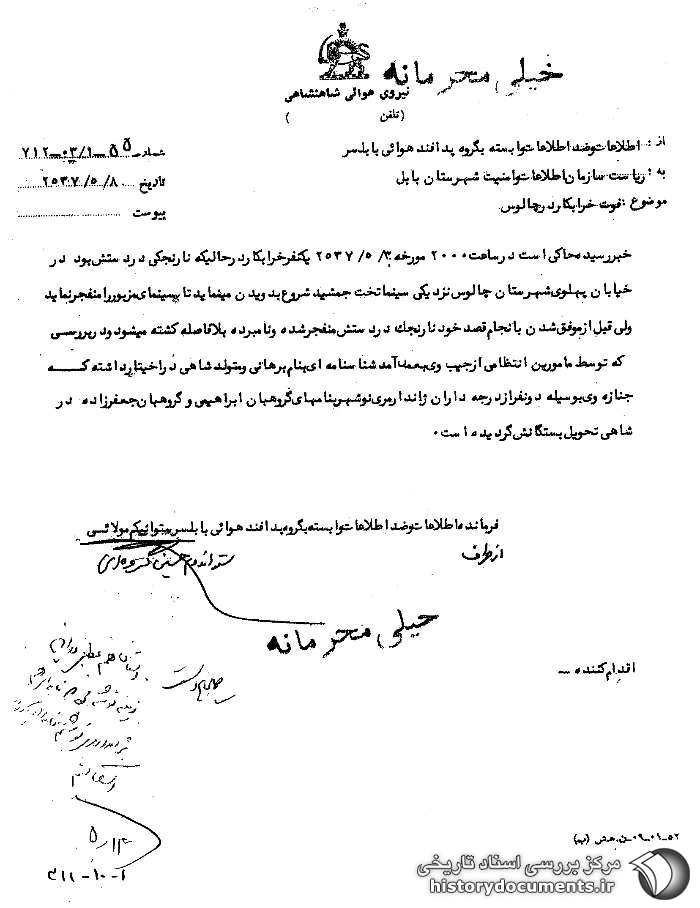 خیلی محرمانه
نیروی هوائی شاهنشاهی
(تلفن )
از : اطلاعات وضد اطلاعات وابسته بگروه پدافند هوائی بابلسر
شماره ۵۵-۷۱۲-۰۳/۱
به : ریاست سازمان اطلاعات وامنیت شهرستان بابل
تاریخ ۲۵۳۷/۵/۸
موضوع : فوت خرابکار درچالوس
پیوست
خبررسیده حاکی است درساعت ۲۰۰۰ مورخه ۲۵۳۷/۵/۳ یکنفرخرابکار درحالیکه نارنجکی دردستش بود در
خیابان پهلوی شهرستان چالوس نزدیکی سینما تخت جمشید شروع بدویدن مینماید تا بسینمای مزبوررا منفجرنماید
ولی قبل ازموفق شدن بانجام قصد خود نارنجک دردستش منفجرشده ونامبرده بلافاصله کشته میشود ودربررسی
که توسط مامورین انتظامی ازجیب وی بعمد آمد شناسنامه ای بنام برهانی ومتولد شاهی دراختیارداشته کـــه
جنازه وی بوسیله دونفرازدرجه داران ژاندارمری نوشهربنامهای گروهبان ابراهیمی و گروهبان جعفرزاده در
شاهی تحویل بستگانش گردیده است ۰
فرمانده اطلاعات وضد اطلاعات وابسته بگروه پدافند هوائی بابلسر ستوانیکم مولائی
ازطرف
خیلی محرمانه
اقدام کننده ــ
۵/۱۴
۵۲-۰۱-۰۹-ن.ه.ش (به)
مرکز بررسی اسناد تاریخی
historydocuments.ir